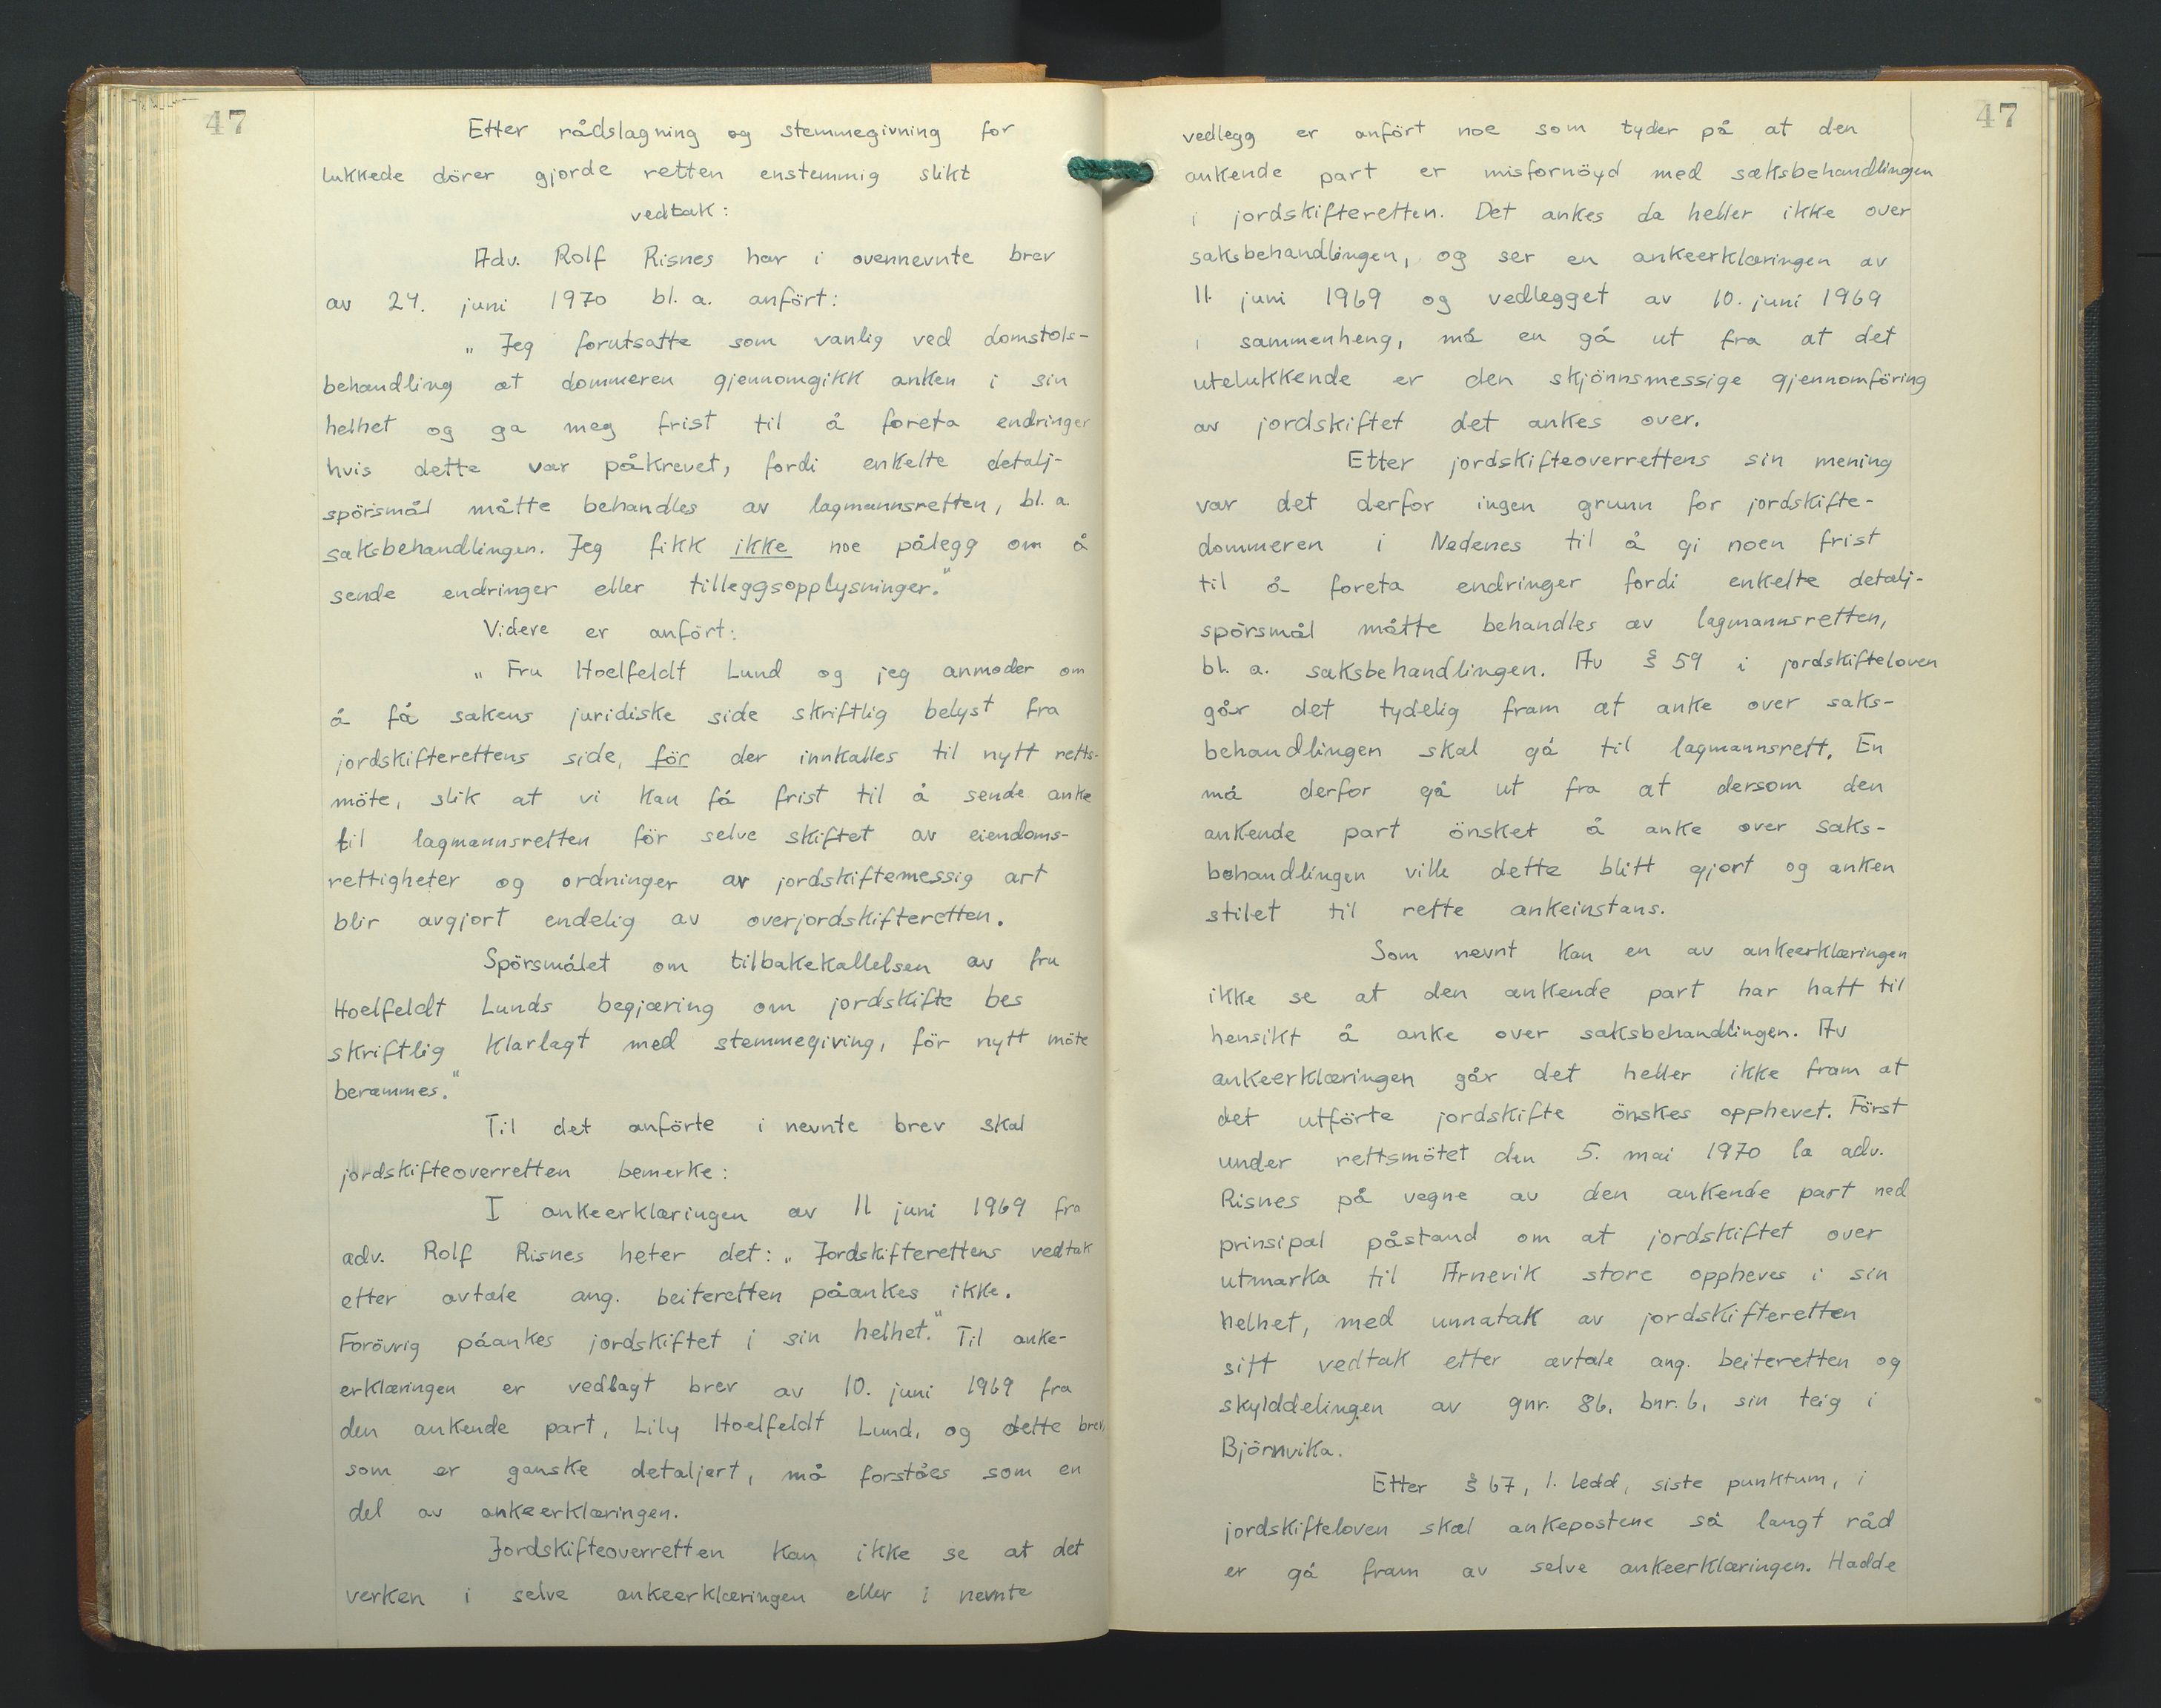 47
Etter rådslagning og stemmegivning for
lukkede dörer gjorde retten enstemmig slikt
vedtak:
Adv. Rolf Risnes har i ovennevnte brev
av 24. juni 1970 bl. a. anfört:
„ Jeg forutsatte som vanlig ved domstols-
behandling at dommeren gjennomgikk anken i sin
helhet og ga meg frist til å foreta endringer
hvis dette var påkrevet, fordi enkelte detalj-
spörsmål måtte behandles av lagmannsretten, bl. a.
saksbehandlingen. Jeg fikk ikke noe pålegg om å
sende endringer eller tilleggsopplysninger."
Videre er anfört:
„ Fru Hoelfeldt Lund og jeg anmoder om
å få sakens juridiske side skriftlig belyst fra
jordskifterettens side, för der innkalles til nytt retts-
möte, slik at vi kan få frist til å sende anke
til lagmannsretten för selve skiftet av eiendoms-
rettigheter og ordninger av jordskiftemessig art
blir avgjort endelig av overjordskifteretten.
Spörsmålet om tilbakekallelsen av fru
Hoelfeldt Lunds begjæring om jordskifte bes
skriftlig klarlagt med stemmegiving, för nytt möte
berammes."
Til det anförte i nevnte brev skal
jordskifteoverretten bemerke:
I ankeerklæringen av 11 juni 1969 fra
adv. Rolf Risnes heter det: „ Jordskifterettens vedtak
etter avtale ang. beiteretten påankes ikke.
Forövrig påankes jordskiftet i sin helhet." Til anke-
erklæringen er vedlagt brev av 10. juni 1969 fra
den ankende part, Lily Hoelfeldt Lund, og dette brev,
som er ganske detaljert, må forståes som en
del av ankeerklæringen.
Jordskifteoverretten kan ikke se at det
verken i selve ankeerklæringen eller i nevnte
47
vedlegg er anfört noe som tyder på at den
ankende part er misfornöyd med saksbehandlingen
i jordskifteretten. Det ankes da heller ikke over
saksbehandlingen, og ser en ankeerklæringen av
11. juni 1969 og vedlegget av 10. juni 1969
i sammenheng, må en gå ut fra at det
utelukkende er den skjönnsmessige gjennomföring
av jordskiftet det ankes over.
Etter jordskifteoverrettens sin mening
var det derfor ingen grunn for jordskifte-
dommeren i Nedenes til å gi noen frist
til å foreta endringer fordi enkelte detalj-
spörsmål måtte behandles av lagmannsretten,
bl. a. saksbehandlingen. Av § 59 i jordskifteloven
går det tydelig fram at anke over saks-
behandlingen skal gå til lagmannsrett. En
må derfor gå ut fra at dersom den
ankende part önsket å anke over saks-
behandlingen ville dette blitt gjort og anken
stilet til rette ankeinstans.
Som nevnt kan en av ankeerklæringen
ikke se at den ankende part har hatt til
hensikt å anke over saksbehandlingen. Av
ankeerklæringen går det heller ikke fram at
det utförte jordskifte önskes opphevet. Först
under rettsmötet den 5. mai 1970 la adv.
Risnes på vegne av den ankende part ned
prinsipal påstand om at jordskiftet over
utmarka til Arnevik store oppheves i sin
helhet, med unnatak av jordskifteretten
sitt vedtak etter avtale ang. beiteretten og
skylddelingen av gnr. 86, bnr. 6, sin teig i
Björnvika.
Etter § 67, 1. ledd, siste punktum, i
jordskifteloven skal ankepostene så langt råd
er gå fram av selve ankeerklæringen. Hadde